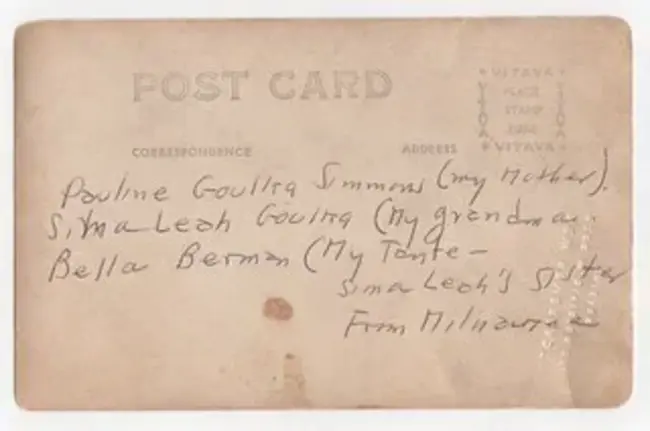 POST CARD
VITAVA
PLACE
STAMP
HERE
VITAVA
CORRESPONDENCE
ADDRESS
Pauline Goulka Simmons (my Mother).
Sima Leah Goulka (My grandma
Bella Berman (My Tante –
Sima Leah's Sister
From Milwaukee